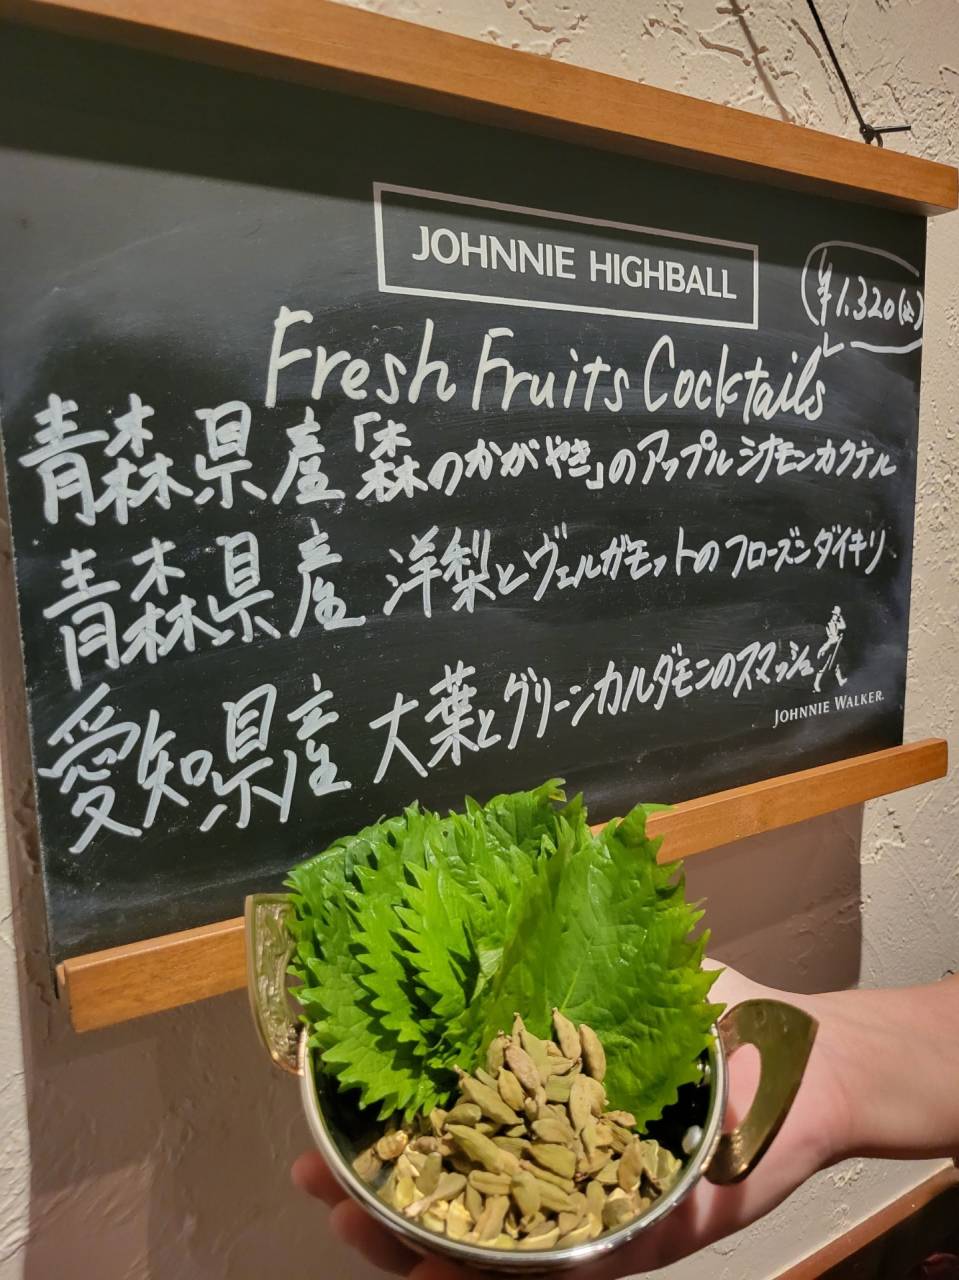 JOHNNIE HIGHBALL
(¥1.320(込)
Fresh Fruits Cocktails
青森県産「森のかがやき」のアップルシナモンカクテル
青森県産 洋梨とヴェルガモットのフローズンダイキリ
愛知県産 大葉とグリーンカルダモンのスマッシュ
JOHNNIE WALKER.